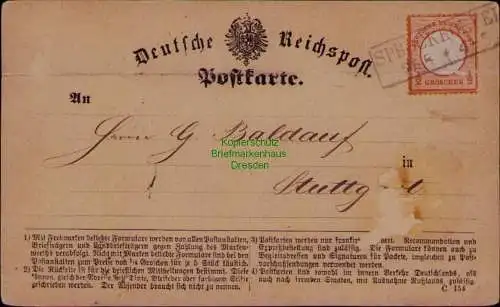 Deutsche Reichspost.
Postkarte.
GROSCHEN
An
Herrn G. Baldauf
in
Stuttg
Kopierschutz
Briefmarkenhaus
Dresden
1) Mit Freimarken beklebte Formulare werden von allen Postanstalten,
Briefträgern und Landbriefträgern gegen Zahlung des Marken-
werths verabfolgt. Nicht mit Marke beklebte Formulare sind bei den
Postanstalten zum Preise von ¼ Groschen für je 5 Stück käuflich.
2) Die Rückseite ist für die brieflichen Mittheilungen bestimmt. Diese
können, gleich der Adresse, mit Tinte, Bleifeder oder farbigem Stift
geschrieben werden. Der Absender braucht sich nicht zu nennen.
3) Postkarten werden nur frankirt
Expreßbestellung sind zulässig. Recommandation und
Begleitadressen und Signaturen für Packete, impliciren zu
Postvorschußsendungen verwandt werden.
4) Postkarten sind sowohl im innern Verkehr Deutschlands, als
auch nach fremden Staaten, mit Ausnahme Rußlands, zulässig.
C. 154